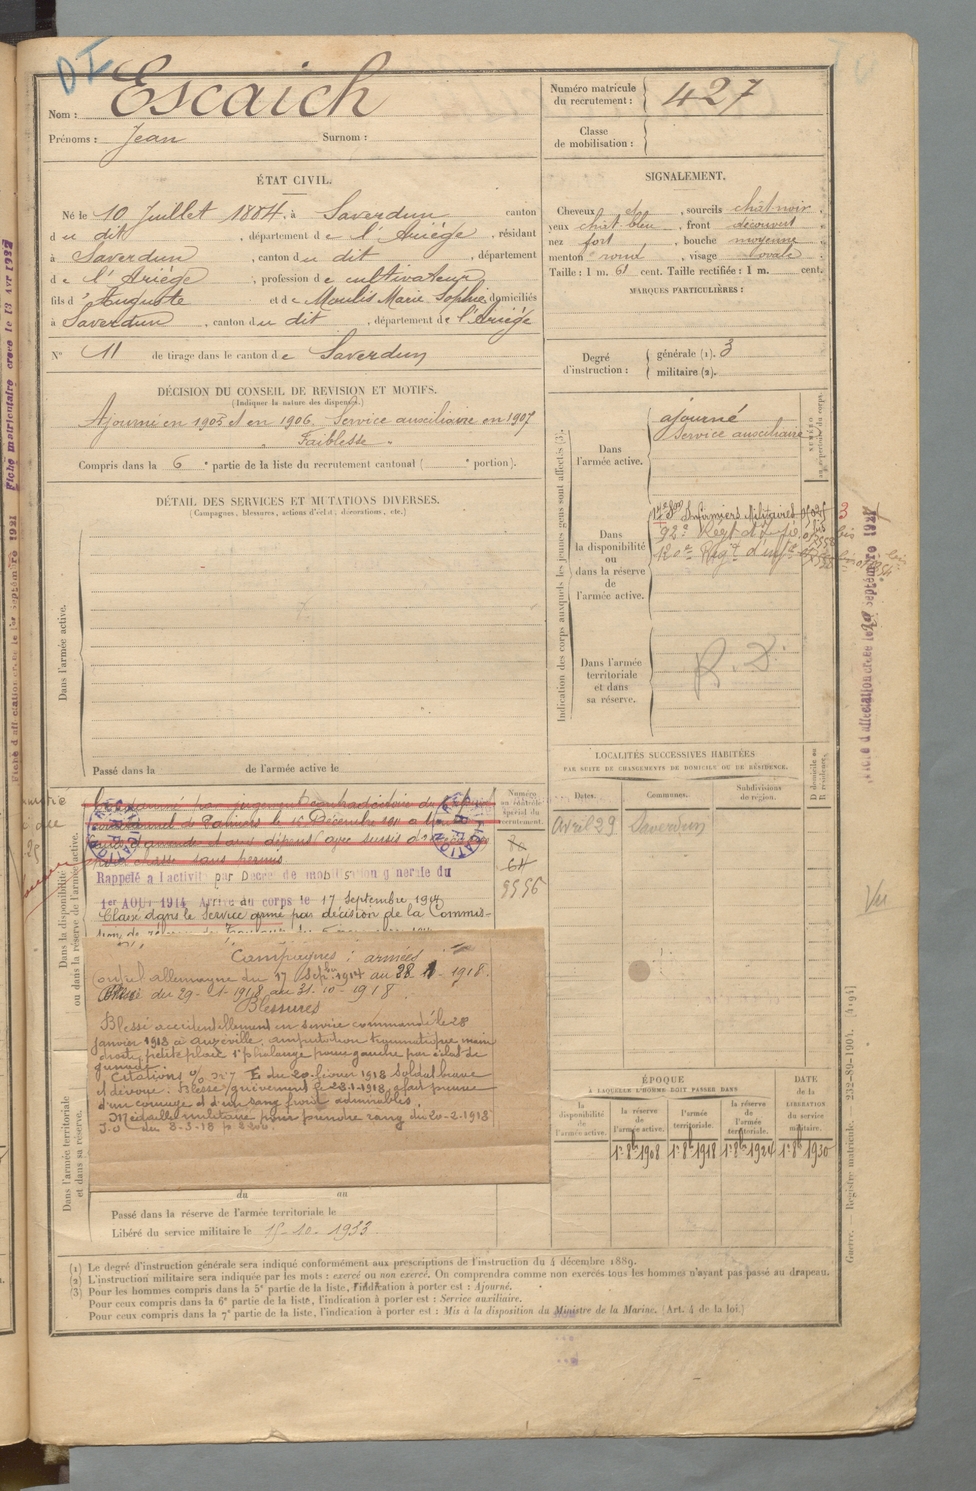 DI
Nom : Escaich
Prénoms : Jean Surnom :
Numéro matricule du recrutement : 427
Classe de mobilisation :
ÉTAT CIVIL.
Né le 10 Juillet 1884, à Saverdun, canton
du dit, département de l'Ariège, résidant
à Saverdun, canton du dit, département
de l'Ariège, profession de cultivateur
fils d'Auguste et de Moulis Marie Sophie, domiciliés
à Saverdun, canton du dit, département de l'Ariège
N° 11 de tirage dans le canton de Saverdun
SIGNALEMENT.
Cheveux et, sourcils chât-noir,
yeux chât-bleu, front découvert,
nez fort, bouche moyenne,
menton rond, visage ovale.
Taille : 1 m. 61 cent. Taille rectifiée : 1 m. cent.
MARQUES PARTICULIÈRES :
Degré d'instruction : générale (1). 3
militaire (2).
DÉCISION DU CONSEIL DE REVISION ET MOTIFS.
(Indiquer la nature des dispenses.)
Ajourné en 1905 et en 1906. Service auxiliaire en 1907
Faiblesse
Compris dans la 6e partie de la liste du recrutement cantonal ( e portion).
DÉTAIL DES SERVICES ET MUTATIONS DIVERSES.
(Campagnes, blessures, actions d'éclat, décorations, etc.)
Dans l'armée active.
Passé dans la de l'armée active le
Indication des corps auxquels les jeunes gens sont affectés (3).
Dans l'armée active.
ajourné
Service auxiliaire
Dans la disponibilité ou dans la réserve de l'armée active.
Infirmiers Militaires
92e Regt d'Inf
120e Régt d'inf
Dans l'armée territoriale et dans sa réserve.
R. D.
LOCALITÉS SUCCESSIVES HABITÉES
PAR SUITE DE CHANGEMENTS DE DOMICILE OU DE RÉSIDENCE.
Dates. Communes. Subdivisions de région. D domicile ou R résidence.
Avril 29 Saverdun
Dans la disponibilité ou dans la réserve de l'armée active.
Condamné par jugement contradictoire du
correctionnel de Pamiers le 15 Décembre 1911 à
d'amende et aux dépens avec sursis
chasse sans permis
Rappelé à l'activité par Décret de mobilisation générale du
1er AOUT 1914. Arrivé au corps le 17 Septembre 1914
Classé dans le Service armé par décision de la Commis-
5556
Campagnes : armées
Contre l'allemagne du 17 Septbre 1914 au 28-1-1918.
du 29-1-1918 au 31-10-1918
Blessures
Blessé accidentellement en service commandé le 28
janvier 1918 à auzeville, amputation traumatique main
droite, petite plaie 1e phalange pouce gauche par éclat de
grenade.
Citations du 20 février 1918 Soldat brave
et dévoué. Blessé grièvement le 28-1-1918, a fait preuve
d'un courage et d'un sang froid admirables.
Médaille militaire pour prendre rang du 20-2-1918
J.O du 8-3-18
Dans l'armée territoriale et dans sa réserve.
du au
Passé dans la réserve de l'armée territoriale le
Libéré du service militaire le 15-10-1933
ÉPOQUE
À LAQUELLE L'HOMME DOIT PASSER DANS
la disponibilité de l'armée active. la réserve de l'armée active. l'armée territoriale. la réserve de l'armée territoriale.
DATE de la LIBÉRATION du service militaire.
1er 8bre 1908 1er 8bre 1918 1er 8bre 1924 1er 8bre 1930
(1) Le degré d'instruction générale sera indiqué conformément aux prescriptions de l'instruction du 4 décembre 1889.
(2) L'instruction militaire sera indiquée par les mots : exercé ou non exercé. On comprendra comme non exercés tous les hommes n'ayant pas passé au drapeau.
(3) Pour les hommes compris dans la 5e partie de la liste, l'indication à porter est : Ajourné.
Pour ceux compris dans la 6e partie de la liste, l'indication à porter est : Service auxiliaire.
Pour ceux compris dans la 7e partie de la liste, l'indication à porter est : Mis à la disposition du Ministre de la Marine. (Art. 4 de la loi.)
Guerre. — Registre matricule. 232-89-1904. [4194]
Vu
Fiche matriculaire créée le 13 Avr 1932
Fiche d'affectation créée le 1er septembre 1921